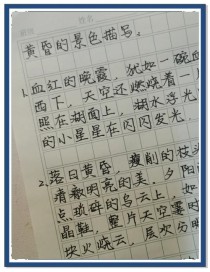 黄昏的景色描写。
1.血红的晚霞，犹如一碗血
西下，天空还燃烧着一片
照在湖面上，湖水浮光
的小星星在闪闪发光，
2.落日黄昏，瘦削的枝头
清澈明亮的美，夕阳
点疏碎的乌云上，如
晶鞋，整片天空霎时
块火烧云，层次分明